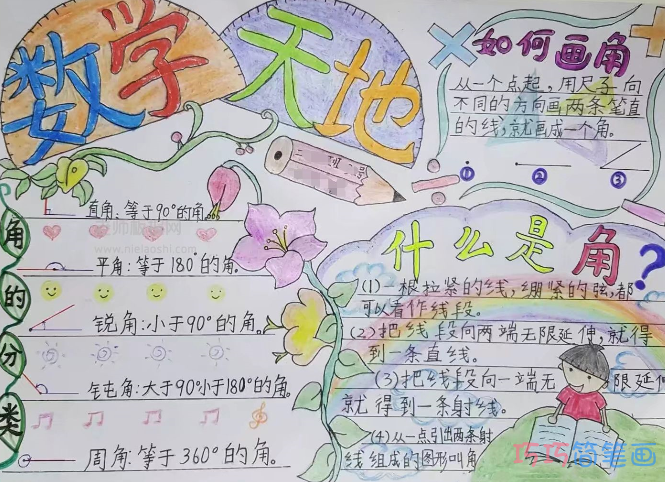 数学天地
如何画角
从一个点起，用尺子向
不同的方向画两条笔直
的线，就画成一个角。
① ② ③
角的分类
直角：等于90°的角。
平角：等于180°的角。
锐角：小于90°的角。
钝角：大于90°小于180°的角
周角：等于360°的角。
什么是角？
(1)一根拉紧的线，绷紧的弦，都
可以看作线段。
(2)把线段向两端无限延伸，就得
到一条直线。
(3)把线段向一端无限延伸
就得到一条射线。
(4)从一点引出两条射
线组成的图形叫角
巧巧简笔画